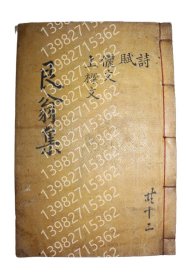 詩
賦
儷文
上樑文
艮翁集
共十二
13982715362
13982715362
13982715362
13982715362
13982715362
13982715362
13982715362
13982715362